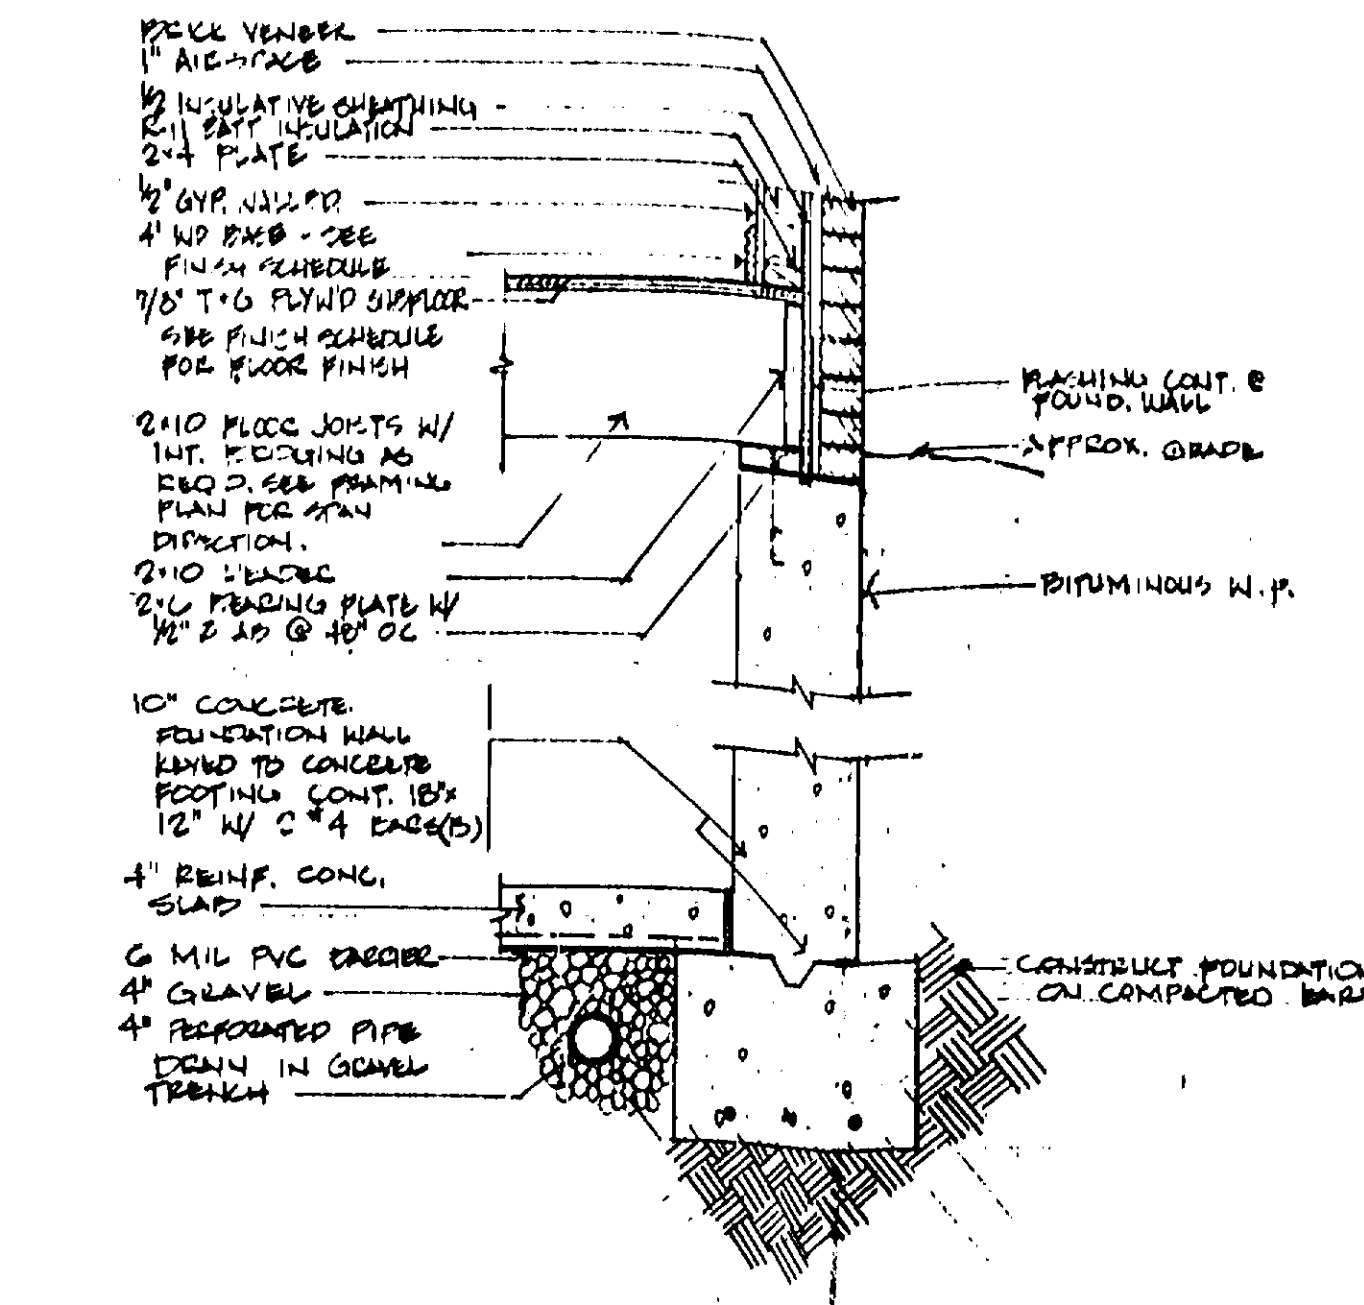 BRICK VENEER
1" AIRSPACE
1/2 INSULATIVE SHEATHING
R-11 BATT INSULATION
2x4 PLATE
1/2" GYP. WALLBD.
4" WD BASE - SEE
FINISH SCHEDULE
7/8" T+G PLYW'D SUBFLOOR
SEE FINISH SCHEDULE
FOR FLOOR FINISH
2x10 FLOOR JOISTS W/
INT. BRIDGING AS
REQ'D. SEE FRAMING
PLAN FOR SPAN
DIRECTION.
2x10 HEADER
2x6 BEARING PLATE W/
1/2" AB @ 48" OC
10" CONCRETE
FOUNDATION WALL
KEYED TO CONCRETE
FOOTING CONT. 18"x
12" W/ #4 BARS(B)
4" REINF. CONC.
SLAB
6 MIL PVC BARRIER
4" GRAVEL
4" PERFORATED PIPE
DRAIN IN GRAVEL
TRENCH
FLASHING CONT. @
FOUND. WALL
APPROX. GRADE
BITUMINOUS W.P.
CONSTRUCT FOUNDATION
ON COMPACTED